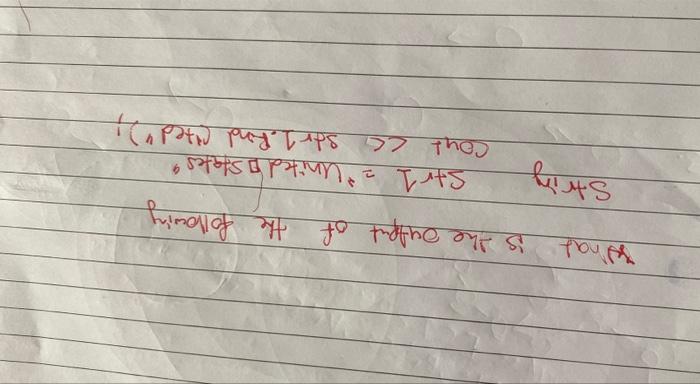 What is the output of the following
String Str1 = "United □ States"
Cout << Str1.find ("ted");